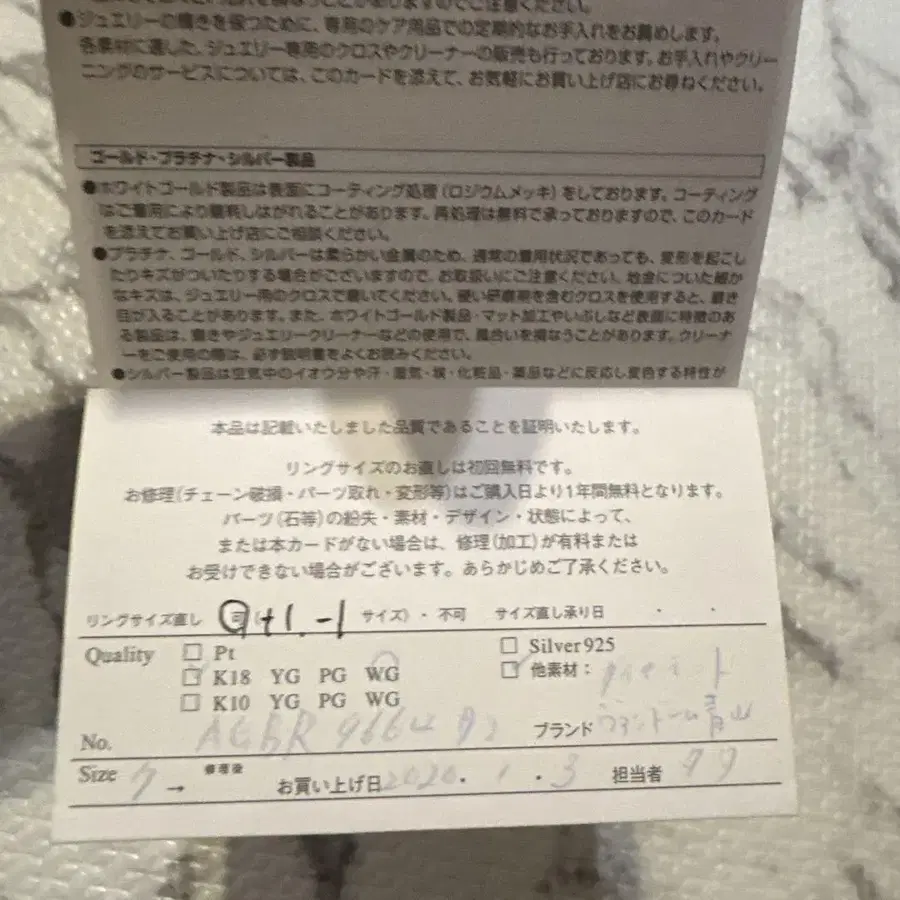 ●ジュエリーの輝きを保つために、専用のケア用品での定期的なお手入れをお薦めします。
各素材に適した、ジュエリー専用のクロスやクリーナーの販売も行っております。お手入れやクリー
ニングのサービスについては、このカードを添えて、お気軽にお買い上げ店にお尋ねください。
ゴールド・プラチナ・シルバー製品
●ホワイトゴールド製品は表面にコーティング処理(ロジウムメッキ)をしております。コーティング
はご着用により磨耗しはがれることがあります。再処理は無料で承っておりますので、このカード
を添えてお買い上げ店にご相談ください。
●プラチナ、ゴールド、シルバーは柔らかい金属のため、通常の着用状況であっても、変形を起こし
たりキズがついたりする場合がございますので、お取扱いにご注意ください。地金についた細か
なキズは、ジュエリー用のクロスで磨いてください。硬い研磨剤を含むクロスを使用すると、磨き
目が入ることがあります。また、ホワイトゴールド製品・マット加工やいぶしなど表面に特徴のあ
る製品は、磨きやジュエリークリーナーなどの使用で、風合いを損なうことがあります。クリーナ
ーをご使用の際は、必ず説明書をよくお読みください。
●シルバー製品は空気中のイオウ分や汗・湿気・埃・化粧品・薬品などに反応し変色する特性が
本品は記載いたしました品質であることを証明いたします。
リングサイズのお直しは初回無料です。
お修理(チェーン破損・パーツ取れ・変形等)はご購入日より1年間無料となります。
パーツ(石等)の紛失・素材・デザイン・状態によって、
または本カードがない場合は、修理(加工)が有料または
お受けできない場合がございます。あらかじめご了承ください。
リングサイズ直し 可 (+1.-1 サイズ)・不可 サイズ直し承り日 ・ ・
Quality □ Pt □ Silver925
□ K18 YG PG WG □ 他素材:
□ K10 YG PG WG
No. ブランド ヴァンドーム青山
Size 7 → 修理後 お買い上げ日 2020・1・3 担当者